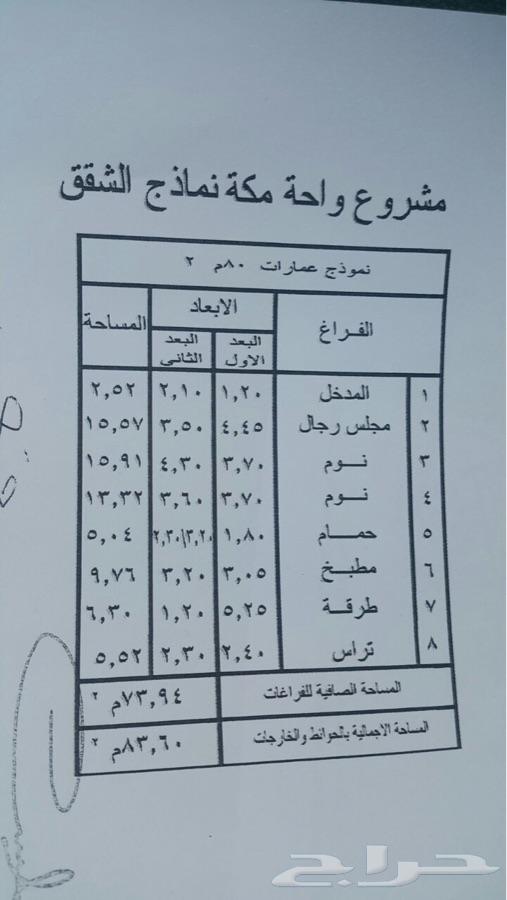 مشروع واحة مكة نماذج الشقق
نموذج عمارات ٨٠م ٢
الفراغ الابعاد المساحة
البعد الاول البعد الثانى
١ المدخل ١,٢٠ ٢,١٠ ٢,٥٢
٢ مجلس رجال ٤,٤٥ ٣,٥٠ ١٥,٥٧
٣ نــوم ٣,٧٠ ٤,٣٠ ١٥,٩١
٤ نــوم ٣,٧٠ ٣,٦٠ ١٣,٣٢
٥ حمـــام ١,٨٠ ٢,٣٠/٣,٢٠ ٥,٠٤
٦ مطبــخ ٣,٠٥ ٣,٢٠ ٩,٧٦
٧ طرقــة ٥,٢٥ ١,٢٠ ٦,٣٠
٨ تراس ٢,٤٠ ٢,٣٠ ٥,٥٢
المساحة الصافية للفراغات ٧٣,٩٤م ٢
المساحة الاجمالية بالحوائط والخارجات ٨٣,٦٠م ٢
حراج